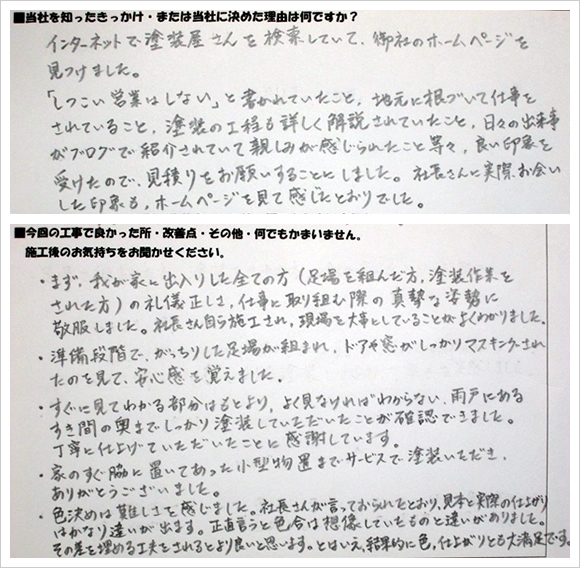 ■当社を知ったきっかけ・または当社に決めた理由は何ですか？
インターネットで塗装屋さんを検索していて、御社のホームページを
見つけました。
「しつこい営業はしない」と書かれていたこと、地元に根づいて仕事を
されていること、塗装の工程も詳しく解説されていたこと、日々の出来事
がブログで紹介されていて親しみが感じられたこと等々、良い印象を
受けたので、見積りをお願いすることにしました。社長さんに実際お会い
した印象も、ホームページを見て感じたとおりでした。
■今回の工事で良かった所・改善点・その他・何でもかまいません。
施工後のお気持ちをお聞かせください。
・まず、我が家に出入りした全ての方（足場を組んだ方、塗装作業を
された方）の礼儀正しさ、仕事に取り組む際の真摯な姿勢に
敬服しました。社長さん自ら施工され、現場を大事としていることがよくわかりました。
・準備段階で、がっちりした足場が組まれ、ドアや窓がしっかりマスキングされ
たのを見て、安心感を覚えました。
・すぐに見てわかる部分はもとより、よく見なければわからない、雨戸にある
すき間の奥までしっかり塗装していただいたことが確認できました。
丁寧に仕上げていただいたことに感謝しています。
・家のすぐ脇に置いてあった小型物置までサービスで塗装いただき、
ありがとうございました。
・色決めは難しさを感じました。社長さんが言っておられたとおり、見本と実際の仕上がり
はかなり違いが出ます。正直言うと色合は想像していたものと違いがありました。
その差を埋める工夫をされるとより良いと思います。とはいえ、結果的に色、仕上がりとも大満足です。